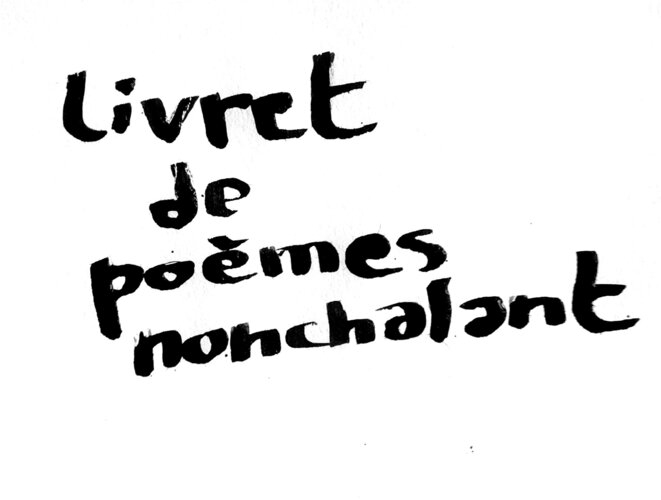 livret
de
poèmes
nonchalant